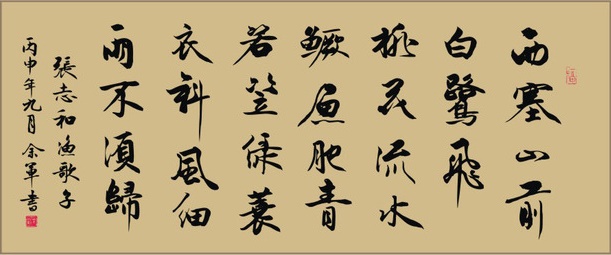 西塞山前
白鷺飛
桃花流水
鱖魚肥青
若笠緑蓑
衣斜風細
雨不須歸
張志和漁歌子
丙申年九月余軍書